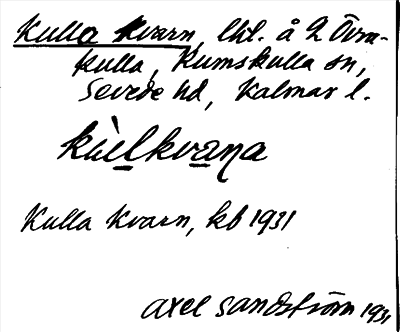 Kulla Kvarn, lht. å 2 Övra-
kulla, Rumskulla sn,
Sevede hd, Kalmar l.
kùlkvana
Kulla Kvarn, kb 1931
Axel Sandström 1931